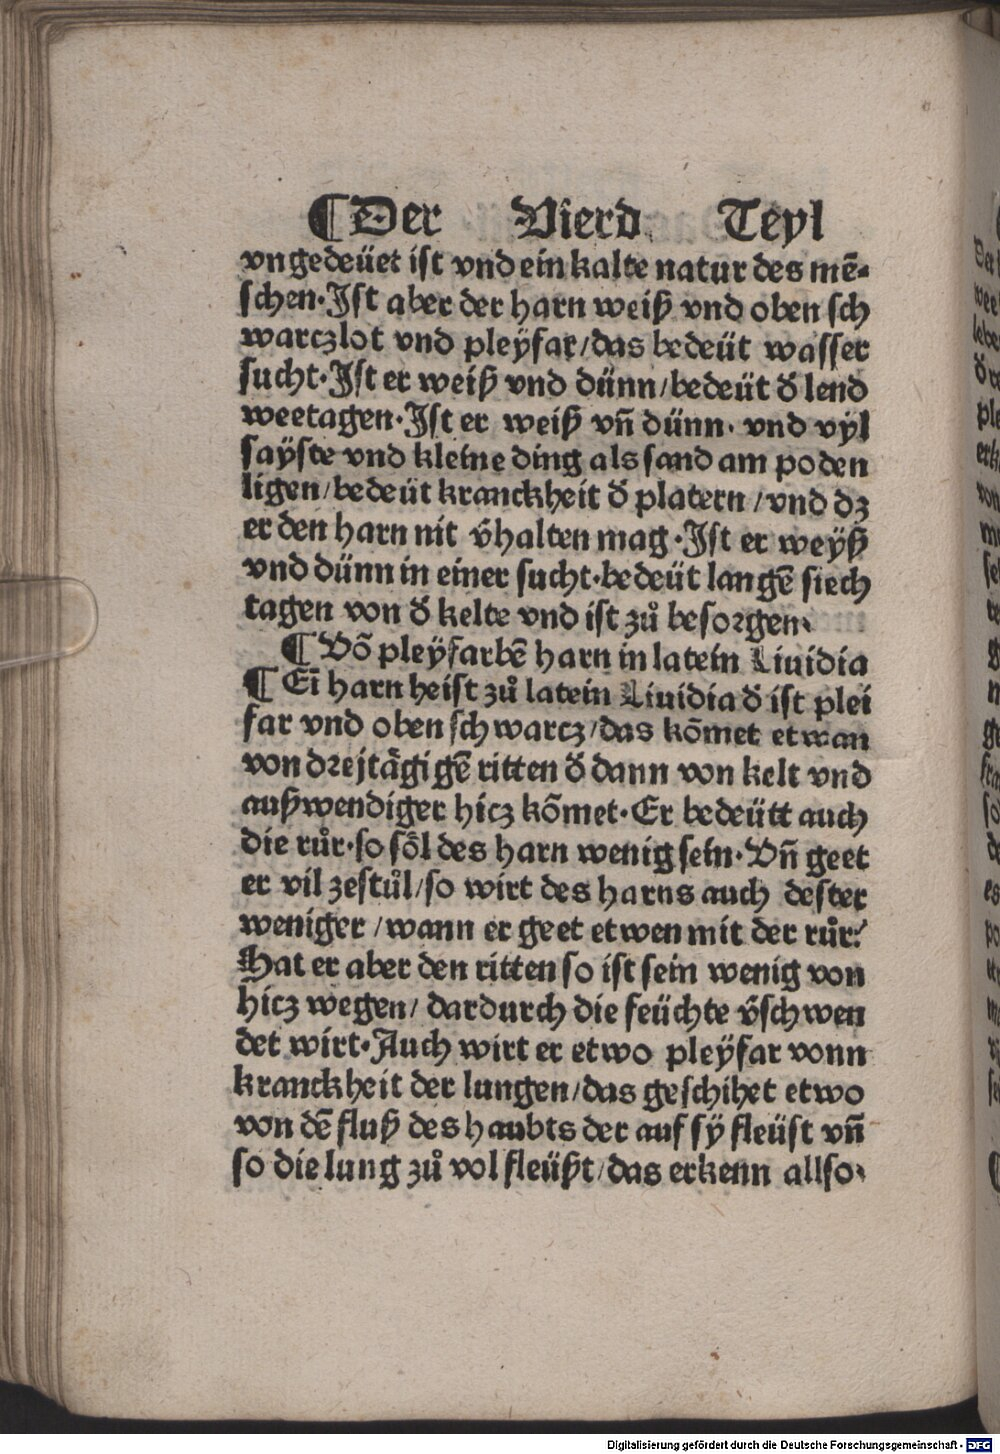 ¶Der Vierd Teyl
vngedeüet ist vnd ein kalte natur des mē-
schen·Ist aber der harn weiß vnd oben sch
warczlot vnd pleÿfar/das bedeüt wasser
sucht·Ist er weiß vnd dünn/bedeüt d̄ lend
weetagen·Ist er weiß vn̄ dünn· vnd vÿl
faÿste vnd kleine ding als sand am poden
ligen/bedeüt kranckheit d̄ platern/vnd dz
er den harn nit v̄halten mag·Ist er weÿß
vnd dünn in einer sucht·bedeüt langē siech
tagen von d̄ kelte vnd ist zů besorgen·
¶Vō pleÿfarbē harn in latein Liuidia
¶Ei harn heist zů latein Liuidia d̄ ist plei
far vnd oben schwarcz/das kōmet etwan
von drejtägigē ritten d̄ dann von kelt vnd
außwendiger hicz kōmet·Er bedeütt auch
die růr·so söl des harn wenig sein·Vn̄ geet
er vil zestůl/so wirt des harns auch dester
weniger/wann er geet etwen mit der růr·
Hat er aber den ritten so ist sein wenig von
hicz wegen/dardurch die feüchte v̄schwen
det wirt·Auch wirt er etwo pleÿfar vonn
kranckheit der lungen/das geschihet etwo
von dē fluß des haubts der auf sÿ fleüst vn̄
so die lung zů vol fleüßt/das erkenn allso·
Digitalisierung gefördert durch die Deutsche Forschungsgemeinschaft - DFG